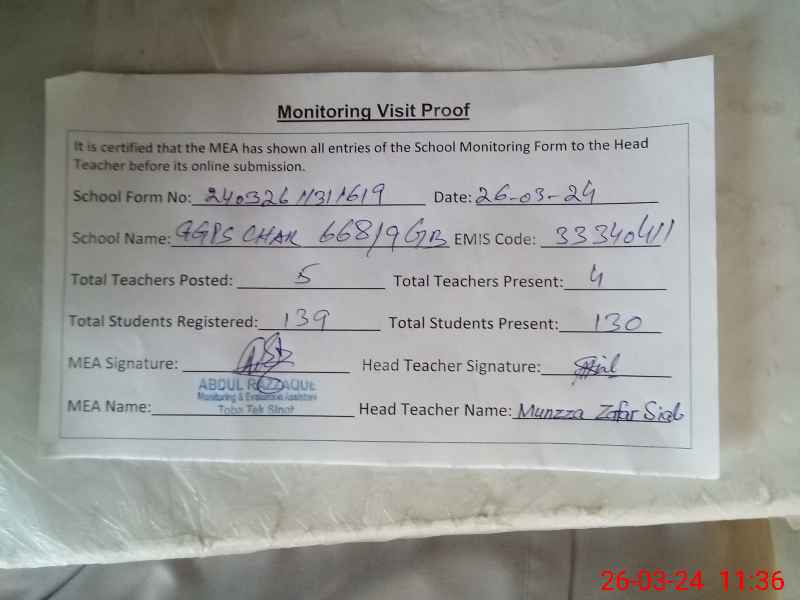 Monitoring Visit Proof
It is certified that the MEA has shown all entries of the School Monitoring Form to the Head
Teacher before its online submission.
School Form No: 240326 Date: 26-03-24
School Name: GGPS CHAK 668/9 GB EMIS Code:
Total Teachers Posted: 5 Total Teachers Present: 4
Total Students Registered: 139 Total Students Present: 130
MEA Signature: Head Teacher Signature:
ABDUL RAZZAQUE
Monitoring & Evaluation Assistant
Toba Tek Singh
MEA Name: Head Teacher Name: Munzza Zafar
26-03-24 11:36